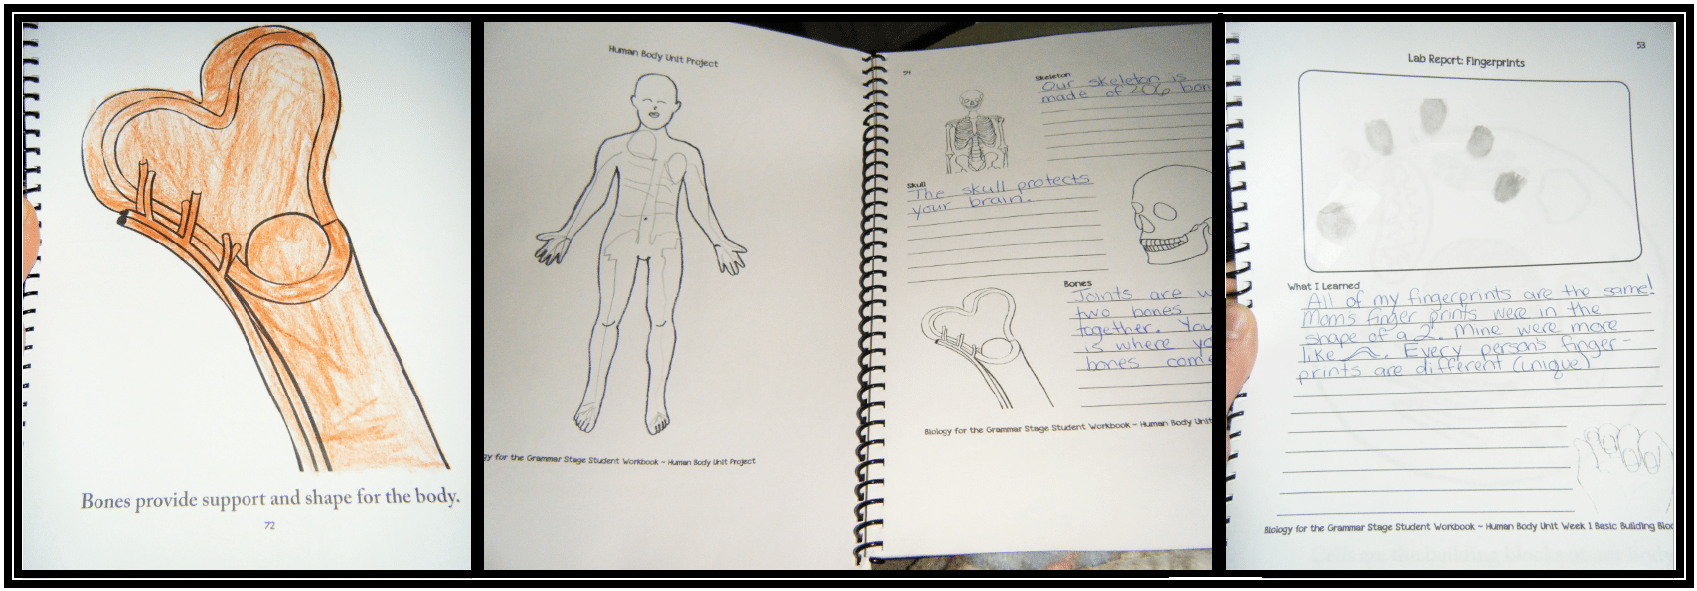 Bones provide support and shape for the body.
72
Human Body Unit Project
gy for the Grammar Stage Student Workbook ~ Human Body Unit Project
54
Skeleton
Our skeleton is
made of 206 bon
Skull
The skull protects
your brain.
Bones
Joints are w
two bones
together. You
is where yo
bones come
Biology for the Grammar Stage Student Workbook ~ Human Body Unit
53
Lab Report: Fingerprints
What I Learned
All of my fingerprints are the same!
Moms finger prints were in the
shape of a 2. Mine were more
like . Every person's finger-
prints are different (unique)
Biology for the Grammar Stage Student Workbook ~ Human Body Unit Week 1 Basic Building Bloc